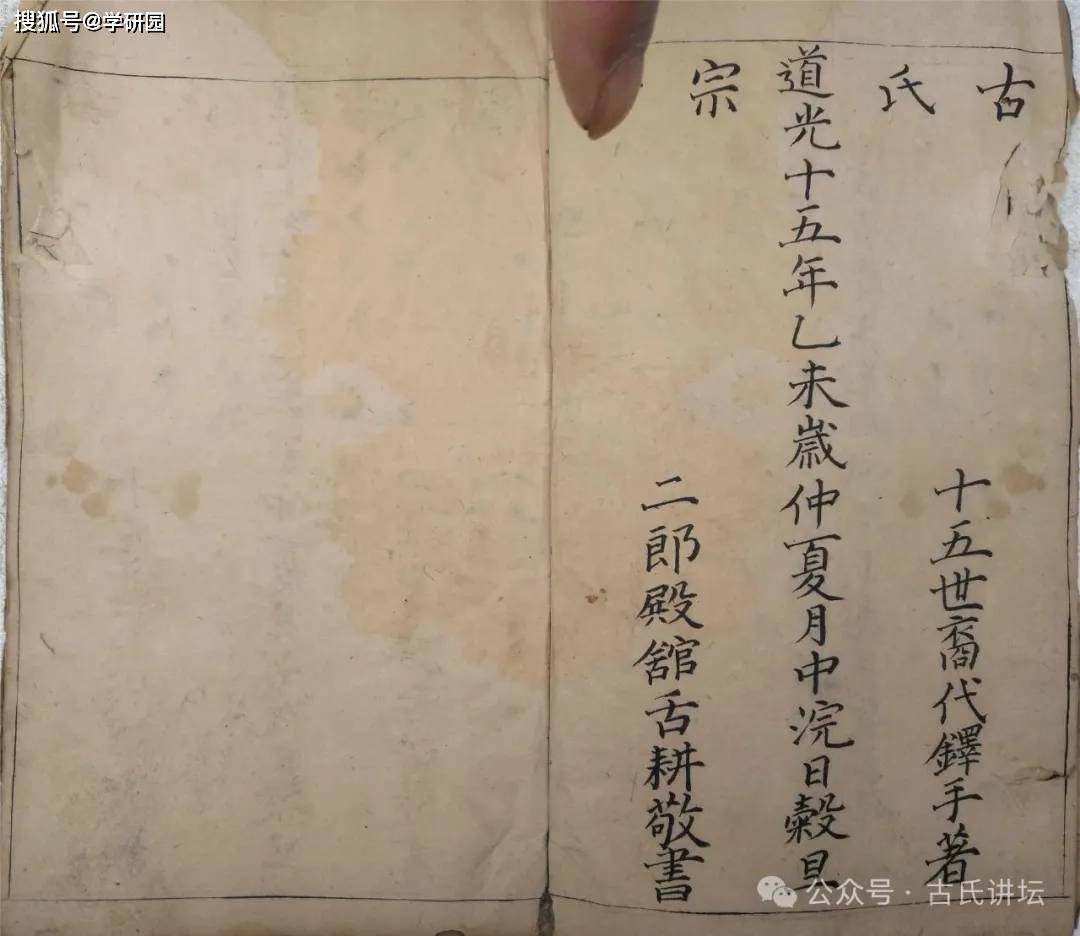 搜狐号@学研园
古
氏
宗
十五世裔代鐸手著
道光十五年乙未歲仲夏月中浣日穀旦
二郎殿舘舌耕敬書
公众号·古氏讲坛